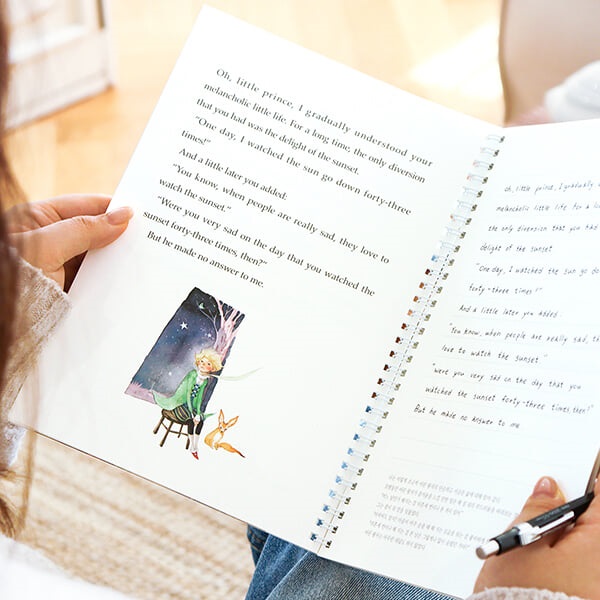 Oh, little prince, I gradually understood your
melancholic little life. For a long time, the only diversion
that you had was the delight of the sunset.
"One day, I watched the sun go down forty-three
times!"
And a little later you added:
"You know, when people are really sad, they love to
watch the sunset."
"Were you very sad on the day that you watched the
sunset forty-three times, then?"
But he made no answer to me.
Oh, little prince, I gradually
melancholic little life for a
the only diversion that you had
delight of the sunset
"One day, I watched the sun go
forty-three times!"
And a little later you added:
"You know, when people are really sad,
love to watch the sunset"
"were you very sad on the day that you
watched the sunset forty-three times then?"
But he made no answer to me.